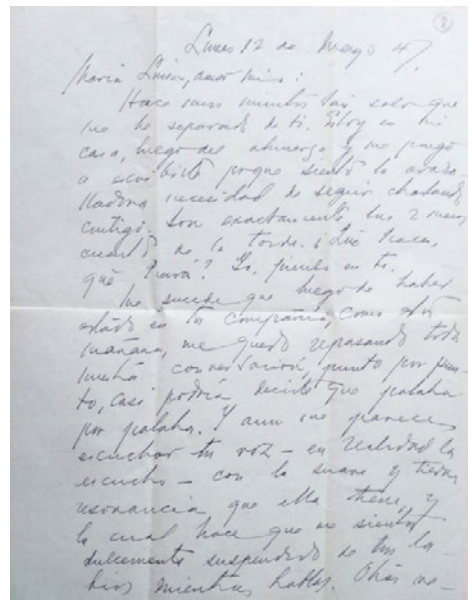 ②
Lunes 12 de Mayo 47.
María Luisa, amor mío:
Hace unos minutos tan solo que
me he separado de ti. Estoy en mi
casa, luego del almuerzo y me pongo
a escribirte porque siento la avasa-
lladora necesidad de seguir charlando
contigo. Son exactamente las 2 menos
cuarto de la tarde. ¿Qué haces,
qué hará? Yo, pienso en ti.
Me sucede que luego de haber
estado en tu compañía, como esta
mañana, me quedo repasando toda
nuestra conversación, punto por pun-
to, casi podría decirte que palabra
por palabra. Y aun me parece
escuchar tu voz – en realidad la
escucho – con la suave y tierna
resonancia que ella tiene, y
la cual hace que me sienta
dulcemente suspendido de tus la-
bios mientras hablas. Otras ve-